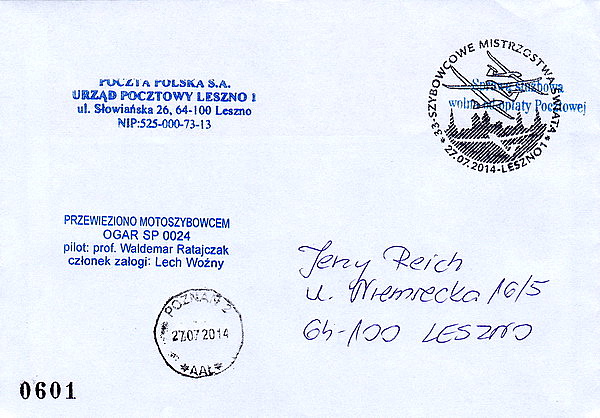 POCZTA POLSKA S.A.
URZĄD POCZTOWY LESZNO 1
ul. Słowiańska 26, 64-100 Leszno
NIP:525-000-73-13
33-SZYBOWCOWE MISTRZOSTWA ŚWIATA
27.07.2014-LESZNO 1
Sprawa służbowa
wolna od opłaty Pocztowej
PRZEWIEZIONO MOTOSZYBOWCEM
OGAR SP 0024
pilot: prof. Waldemar Ratajczak
członek załogi: Lech Woźny
Jerzy Reich
u. Niemiecka 16/5
64-100 LESZNO
POZNAŃ 2
27.07 2014
*AAŁ*
0601